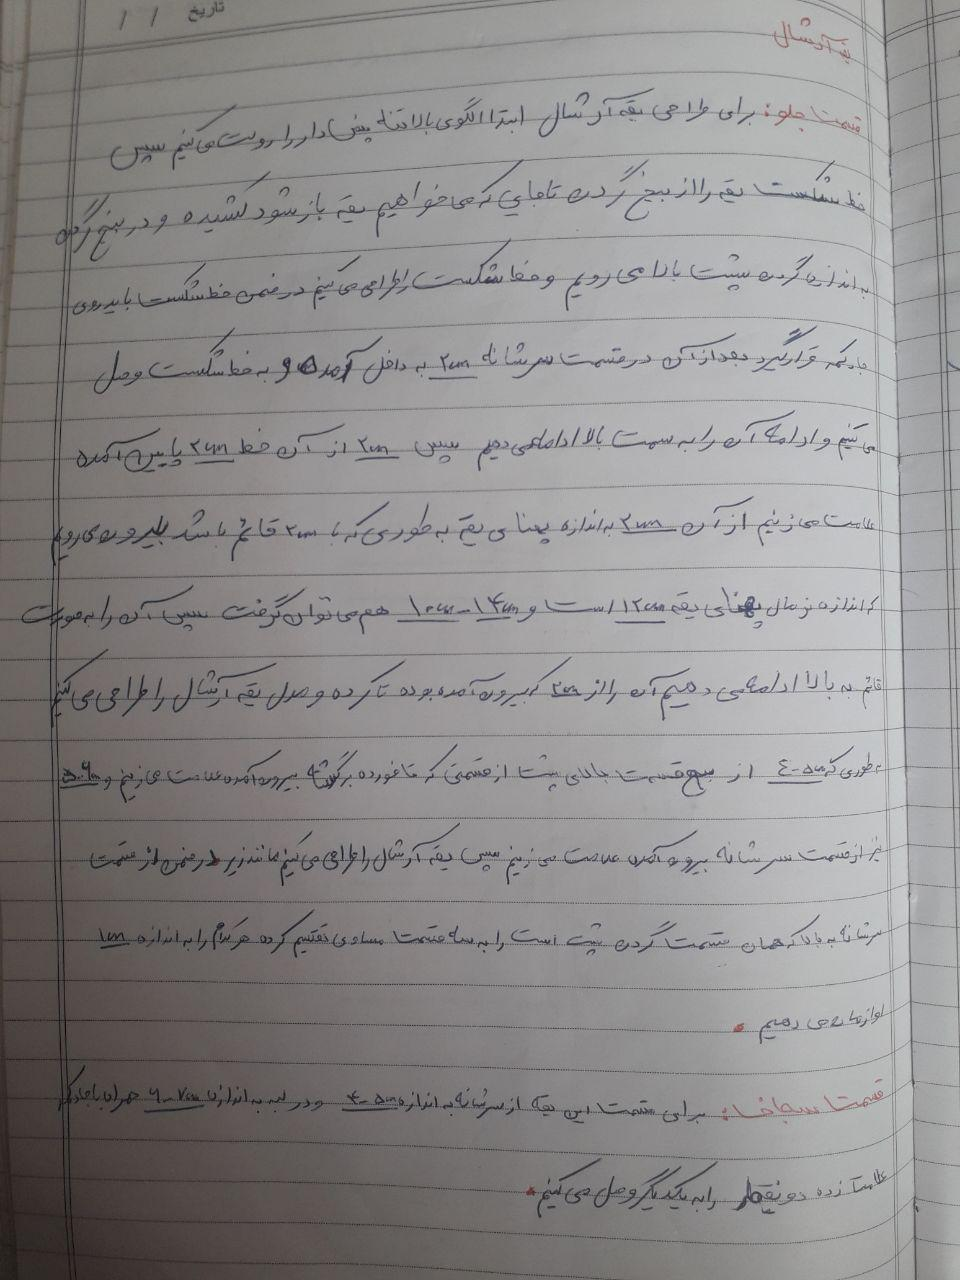 تاریخ / /
یقه آرشال
قسمت جلو: برای طراحی یقه آرشال ابتدا الگوی بالاتنه پنس دار را رولت می کنیم سپس
خط شکست یقه را از بیخ گردن تا جایی که می خواهیم یقه باز شود کشیده و در بیخ گردن
به اندازه گردن پشت بالا می رویم و خط شکست را طراحی می کنیم در ضمن خط شکست باید روی
جادکمه قرار گیرد بعد از آن در قسمت سرشانه ۲cm به داخل آمده و به خط شکست وصل
می کنیم و ادامه آن را به سمت بالا ادامه می دهیم سپس ۲cm از آن خط ۲cm پایین آمده
علامت می زنیم از آن ۲cm به اندازه پهنای یقه به طوری که با ۲cm قائم باشد بیرون می رویم
که اندازه نرمال پهنای یقه ۱۲cm است و ۱۰cm-۱۴cm هم می توان گرفت سپس آن را به صورت
قائم به بالا ادامه می دهیم آن را از ۲cm که بیرون آمده بوده تا کرده و مدل یقه آرشال را طراحی می کنیم
به طوری که ۴-۵cm از قسمت بالای پشت از قسمتی که تا خورده برگشته بیرون آمده علامت می زنیم و ۵-۶cm
نیز از قسمت سرشانه بیرون آمده علامت می زنیم سپس یقه آرشال را طراحی می کنیم مانند زیر در ضمن از قسمت
سرشانه به بالا که همان قسمت گردن پشت است را به سه قسمت مساوی تقسیم کرده هر کدام را به اندازه ۱cm
اوازمان می دهیم.
قسمت سجاف: برای قسمت این یقه از سرشانه به اندازه ۴-۵cm و در لبه به اندازه ۶-۷cm همراه با جادکمه
علامت زده دو نقطه را به یکدیگر وصل می کنیم.